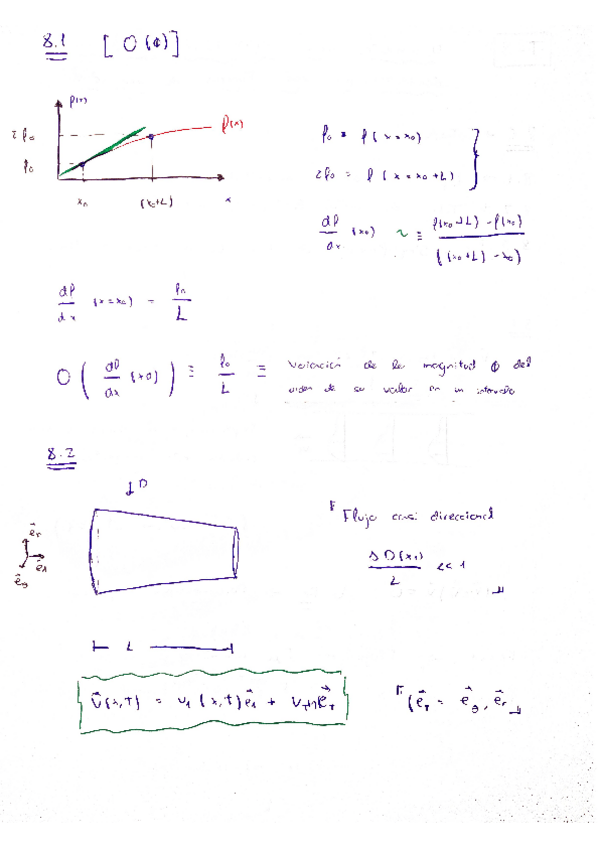 8.1 [ O(ϕ) ]
f(x)
2f₀
f₀
f(x)
x₀ (x₀+L) x
f₀ = f(x=x₀)
2f₀ = f(x=x₀+L)
df/dx (x₀) ~ ≡ (f(x₀+L) - f(x₀)) / ((x₀+L) - x₀)
df/dx (x=x₀) = f₀/L
O( dϕ/dx (x₀) ) ≡ f₀/L ≡ Variación de la magnitud ϕ del
orden de su valor en un intervalo
8.2
↓D
e⃗r
e⃗1
e⃗θ
Flujo casi direccional
Δ D(x1)/L << 1
L
v⃗(x,t) = v1(x,t)e⃗1 + vT e⃗T
(e⃗T = e⃗θ, e⃗r